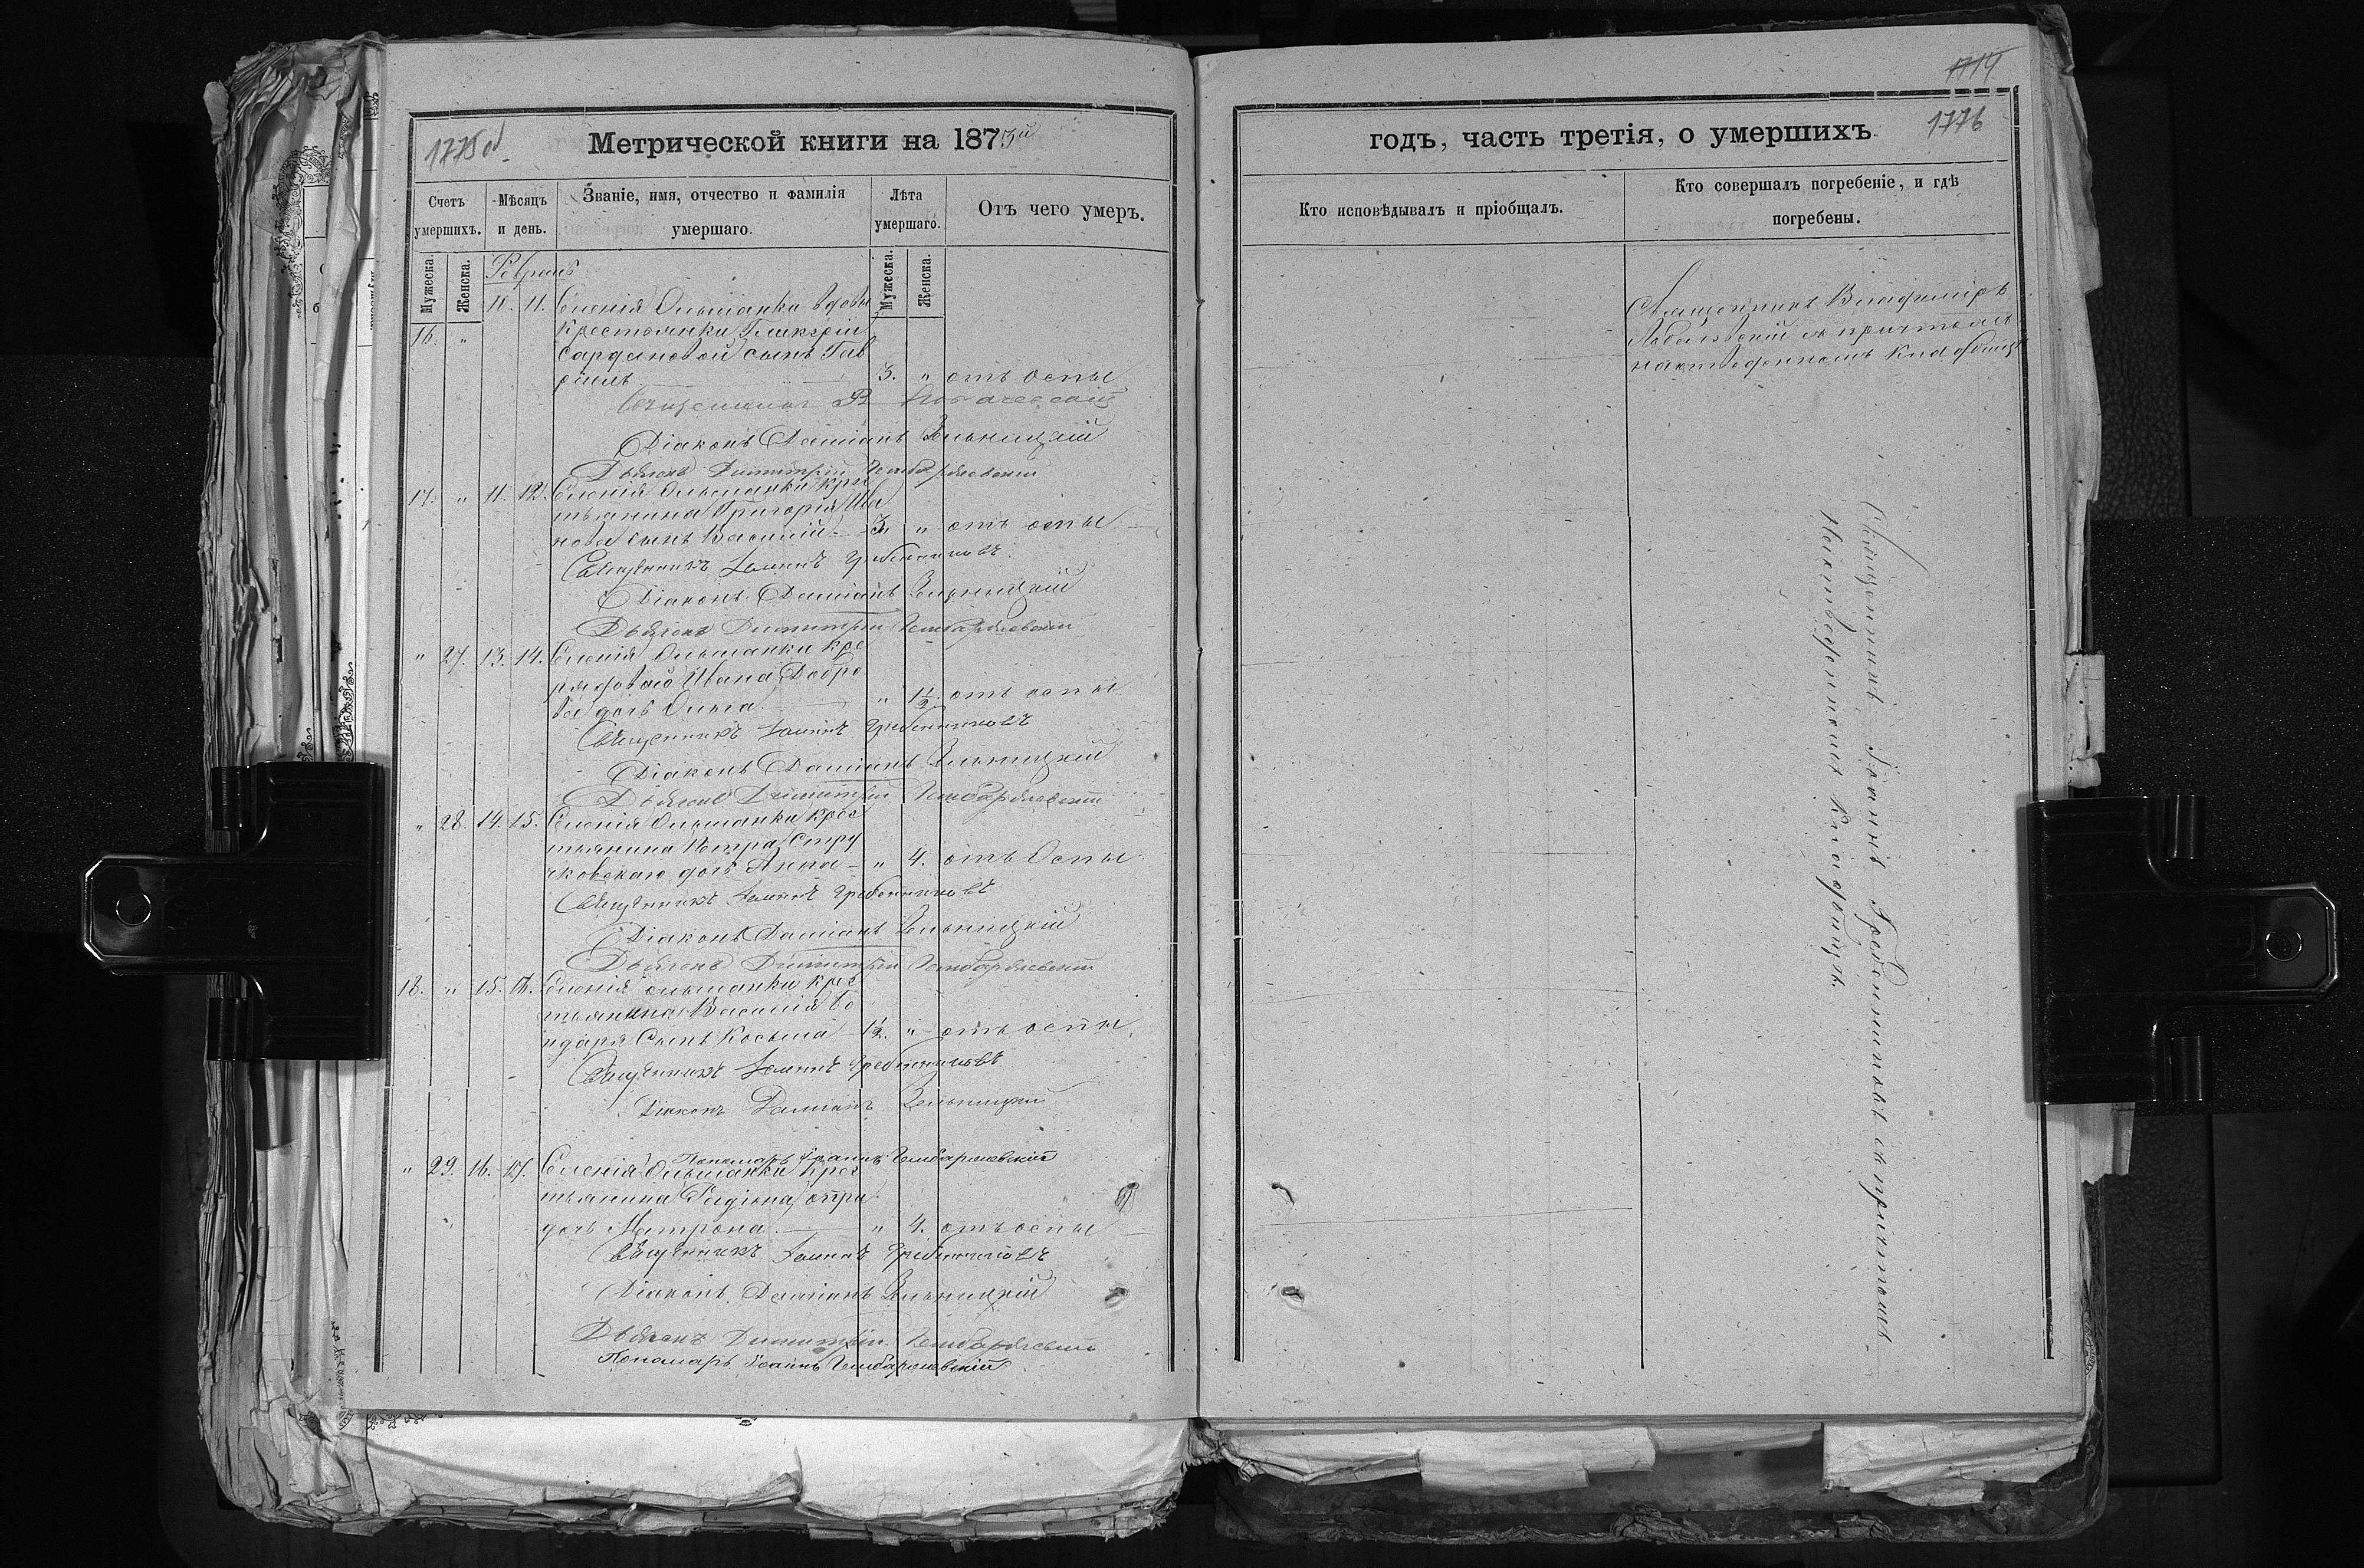 1775об
Метрической книги на 1873й
Счетъ умершихъ.
Мѣсяцъ и день.
Званіе, имя, отчество и фамилія умершаго.
Лѣта умершаго.
Отъ чего умеръ.
Мужеска.
Женска.
Мужеска.
Женска.
16. " 10. 11. Селенія Ольшанки вдовы
крестьянки
сынъ Гав
ріилъ 3. " отъ оспы
Священникъ В
Діаконъ Даміанъ Зельницкій
Дьячекъ Димитрій
17. " 11. 12. Селенія Ольшанки крес
тьянина Григорія Ива
нова сынъ Василій 3. " отъ оспы
Священникъ Іоаннъ Гребенниковъ
Діаконъ Даміанъ Зельницкій
Дьячекъ Димитрій
" 27. 13. 14. Селенія Ольшанки
рядоваго Ивана Добро
ва дочь Ольга " 1½ отъ оспы
Священникъ Іоаннъ Гребенниковъ
Діаконъ Даміанъ Зельницкій
Дьячекъ Димитрій
" 28. 14. 15. Селенія Ольшанки крес
тьянина Петра Стру
чковскаго дочь Анна " 4. отъ Оспы
Священникъ Іоаннъ Гребенниковъ
Діаконъ Даміанъ Зельницкій
Дьячекъ Димитрій
18. " 15. Селенія Ольшанки крес
тьянина Василія Бо
ндаря Сынъ Косьма 1½. " отъ оспы
Священникъ Іоаннъ Гребенниковъ
Діаконъ Даміанъ Зельницкій
Пономарь Іоаннъ
" 29. 16. 17. Селенія Ольшанки крес
тьянина
дочь Матрона " 4. отъ оспы
Священникъ Іоаннъ Гребенниковъ
Діаконъ Даміанъ Зельницкій
Дьячекъ Димитрій
Пономарь Іоаннъ
1714
1776
годъ, часть третія, о умершихъ
Кто исповѣдывалъ и пріобщалъ.
Кто совершалъ погребеніе, и гдѣ погребены.
Священникъ Владиміръ
съ причтомъ
на отведенномъ кладбищѣ
Священникъ Іоаннъ Гребенниковъ съ причтомъ
на отведенномъ кладбищѣ.